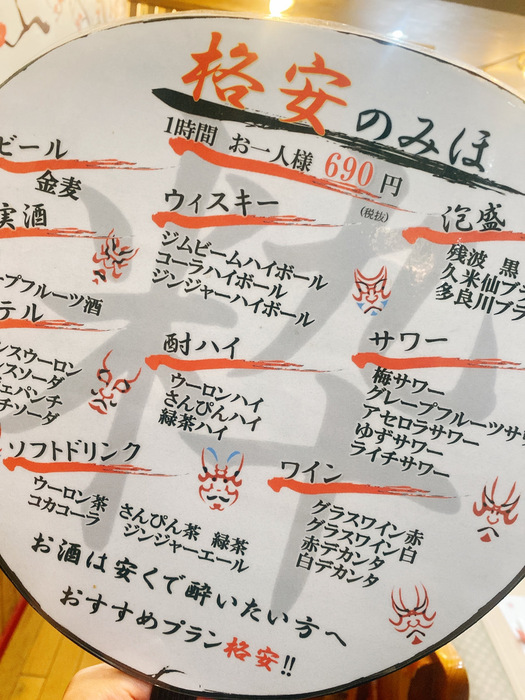 格安のみほ
1時間 お一人様 690円
(税抜)
ビール
金麦
実酒
ープフルーツ酒
テル
シスウーロン
シスソーダ
チソーダ
ウィスキー
ジムビームハイボール
コーラハイボール
ジンジャーハイボール
泡盛
残波 黒
久米仙ブラ
多良川ブラ
酎ハイ
ウーロンハイ
さんぴんハイ
緑茶ハイ
サワー
梅サワー
グレープフルーツサワ
アセロラサワー
ゆずサワー
ライチサワー
ソフトドリンク
ウーロン茶 さんぴん茶 緑茶
コカコーラ ジンジャーエール
ワイン
グラスワイン赤
グラスワイン白
赤デカンタ
白デカンタ
お酒は安くで酔いたい方へ
おすすめプラン格安!!
粋